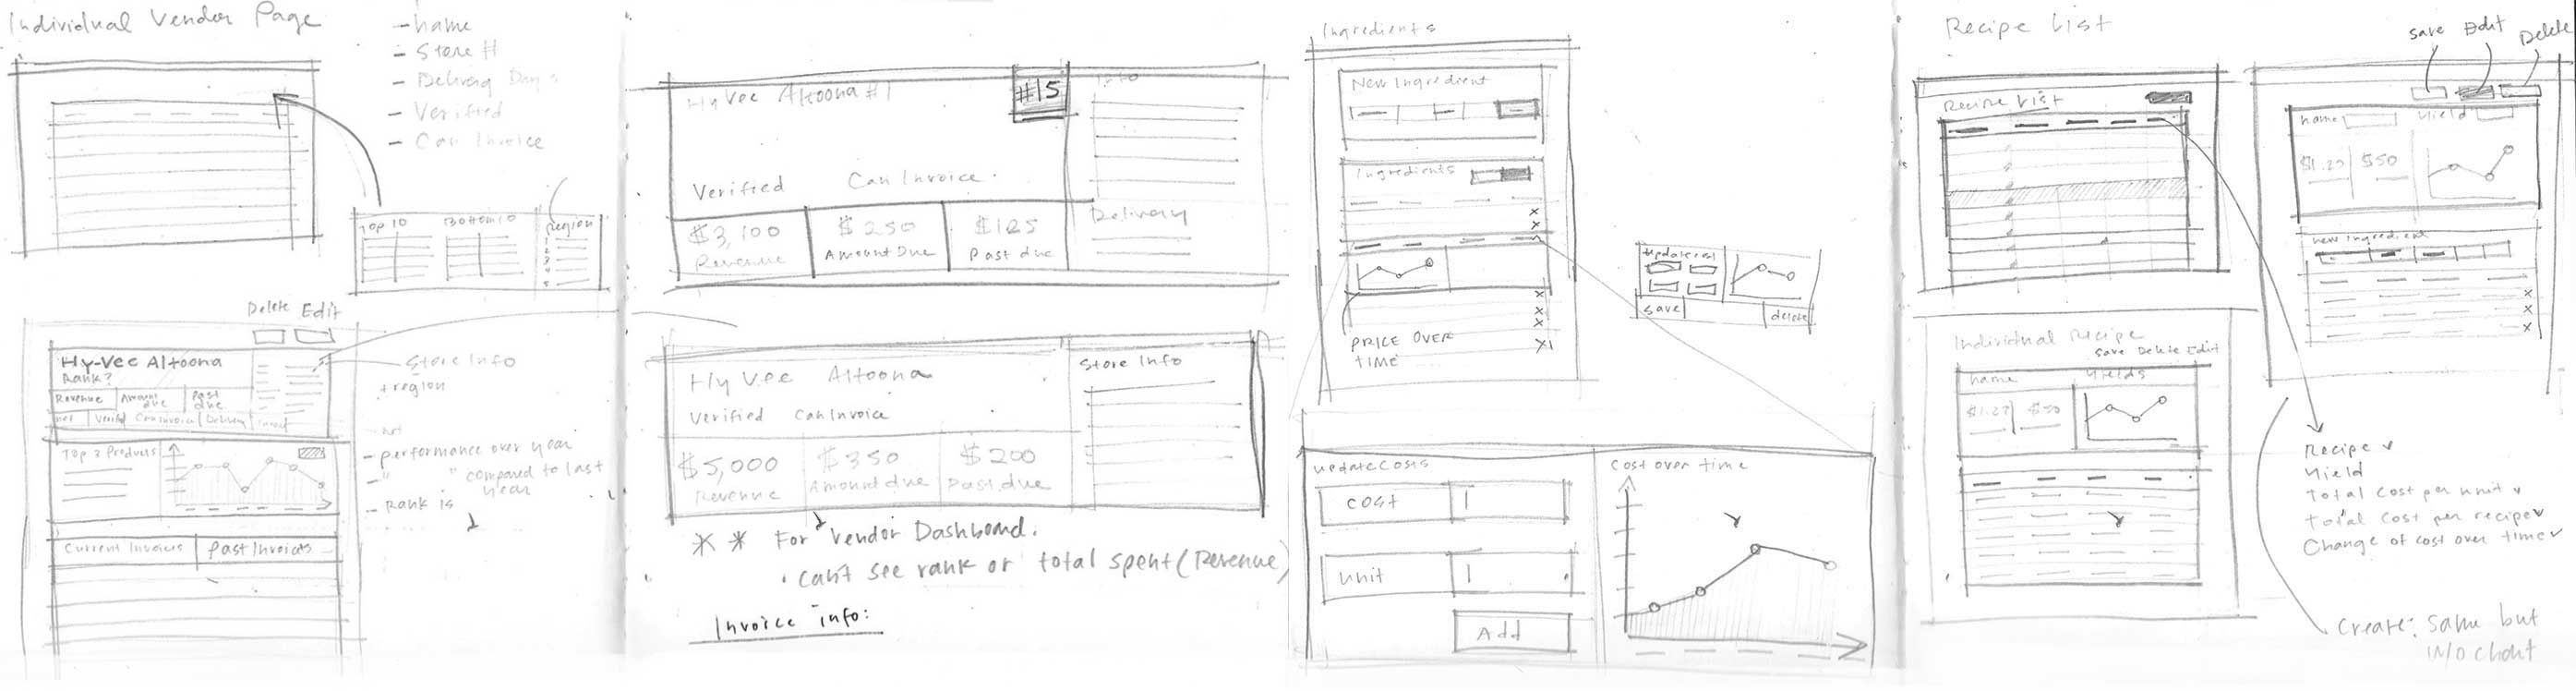 Individual Vendor Page
- name
- Store #
- Delivery Days
- Verified
- Can Invoice
Top 10
Bottom 10
Region
1
2
3
4
5
Delete Edit
Hy-Vee Altoona
Rank?
Revenue
Amount due
Past due
net
Verified
Can Invoice
Delivery
- Store Info
+ region
- net
- performance over year
- " " compared to last year
- Rank is
Top 3 Products
Current Invoices
Past Invoices
Hy Vee Altoona #1
#15
Info
Verified
Can Invoice.
$3,100
Revenue
$250
Amount Due
$125
Past due
Delivery
Hy Vee Altoona
Verified
Can Invoice
Store Info
$5,000
Revenue
$350
Amount due
$200
Past due
** For Vendor Dashboard.
· can't see rank or total spent (Revenue)
Invoice info:
Ingredients
New Ingredient
Ingredients
x
x
x
x
x
x
PRICE OVER
TIME
save
delete
update costs
cost
unit
Add
Cost over time
Recipe List
Recipe List
save Edit Delete
name
yield
$1.27
$50
new Ingredient
x
x
x
Individual Recipe
Save Delete Edit
name
yields
$1.27
$50
Recipe ✓
Yield
Total cost per unit ✓
total cost per recipe ✓
Change of cost over time ✓
Create: Same but
w/o chart